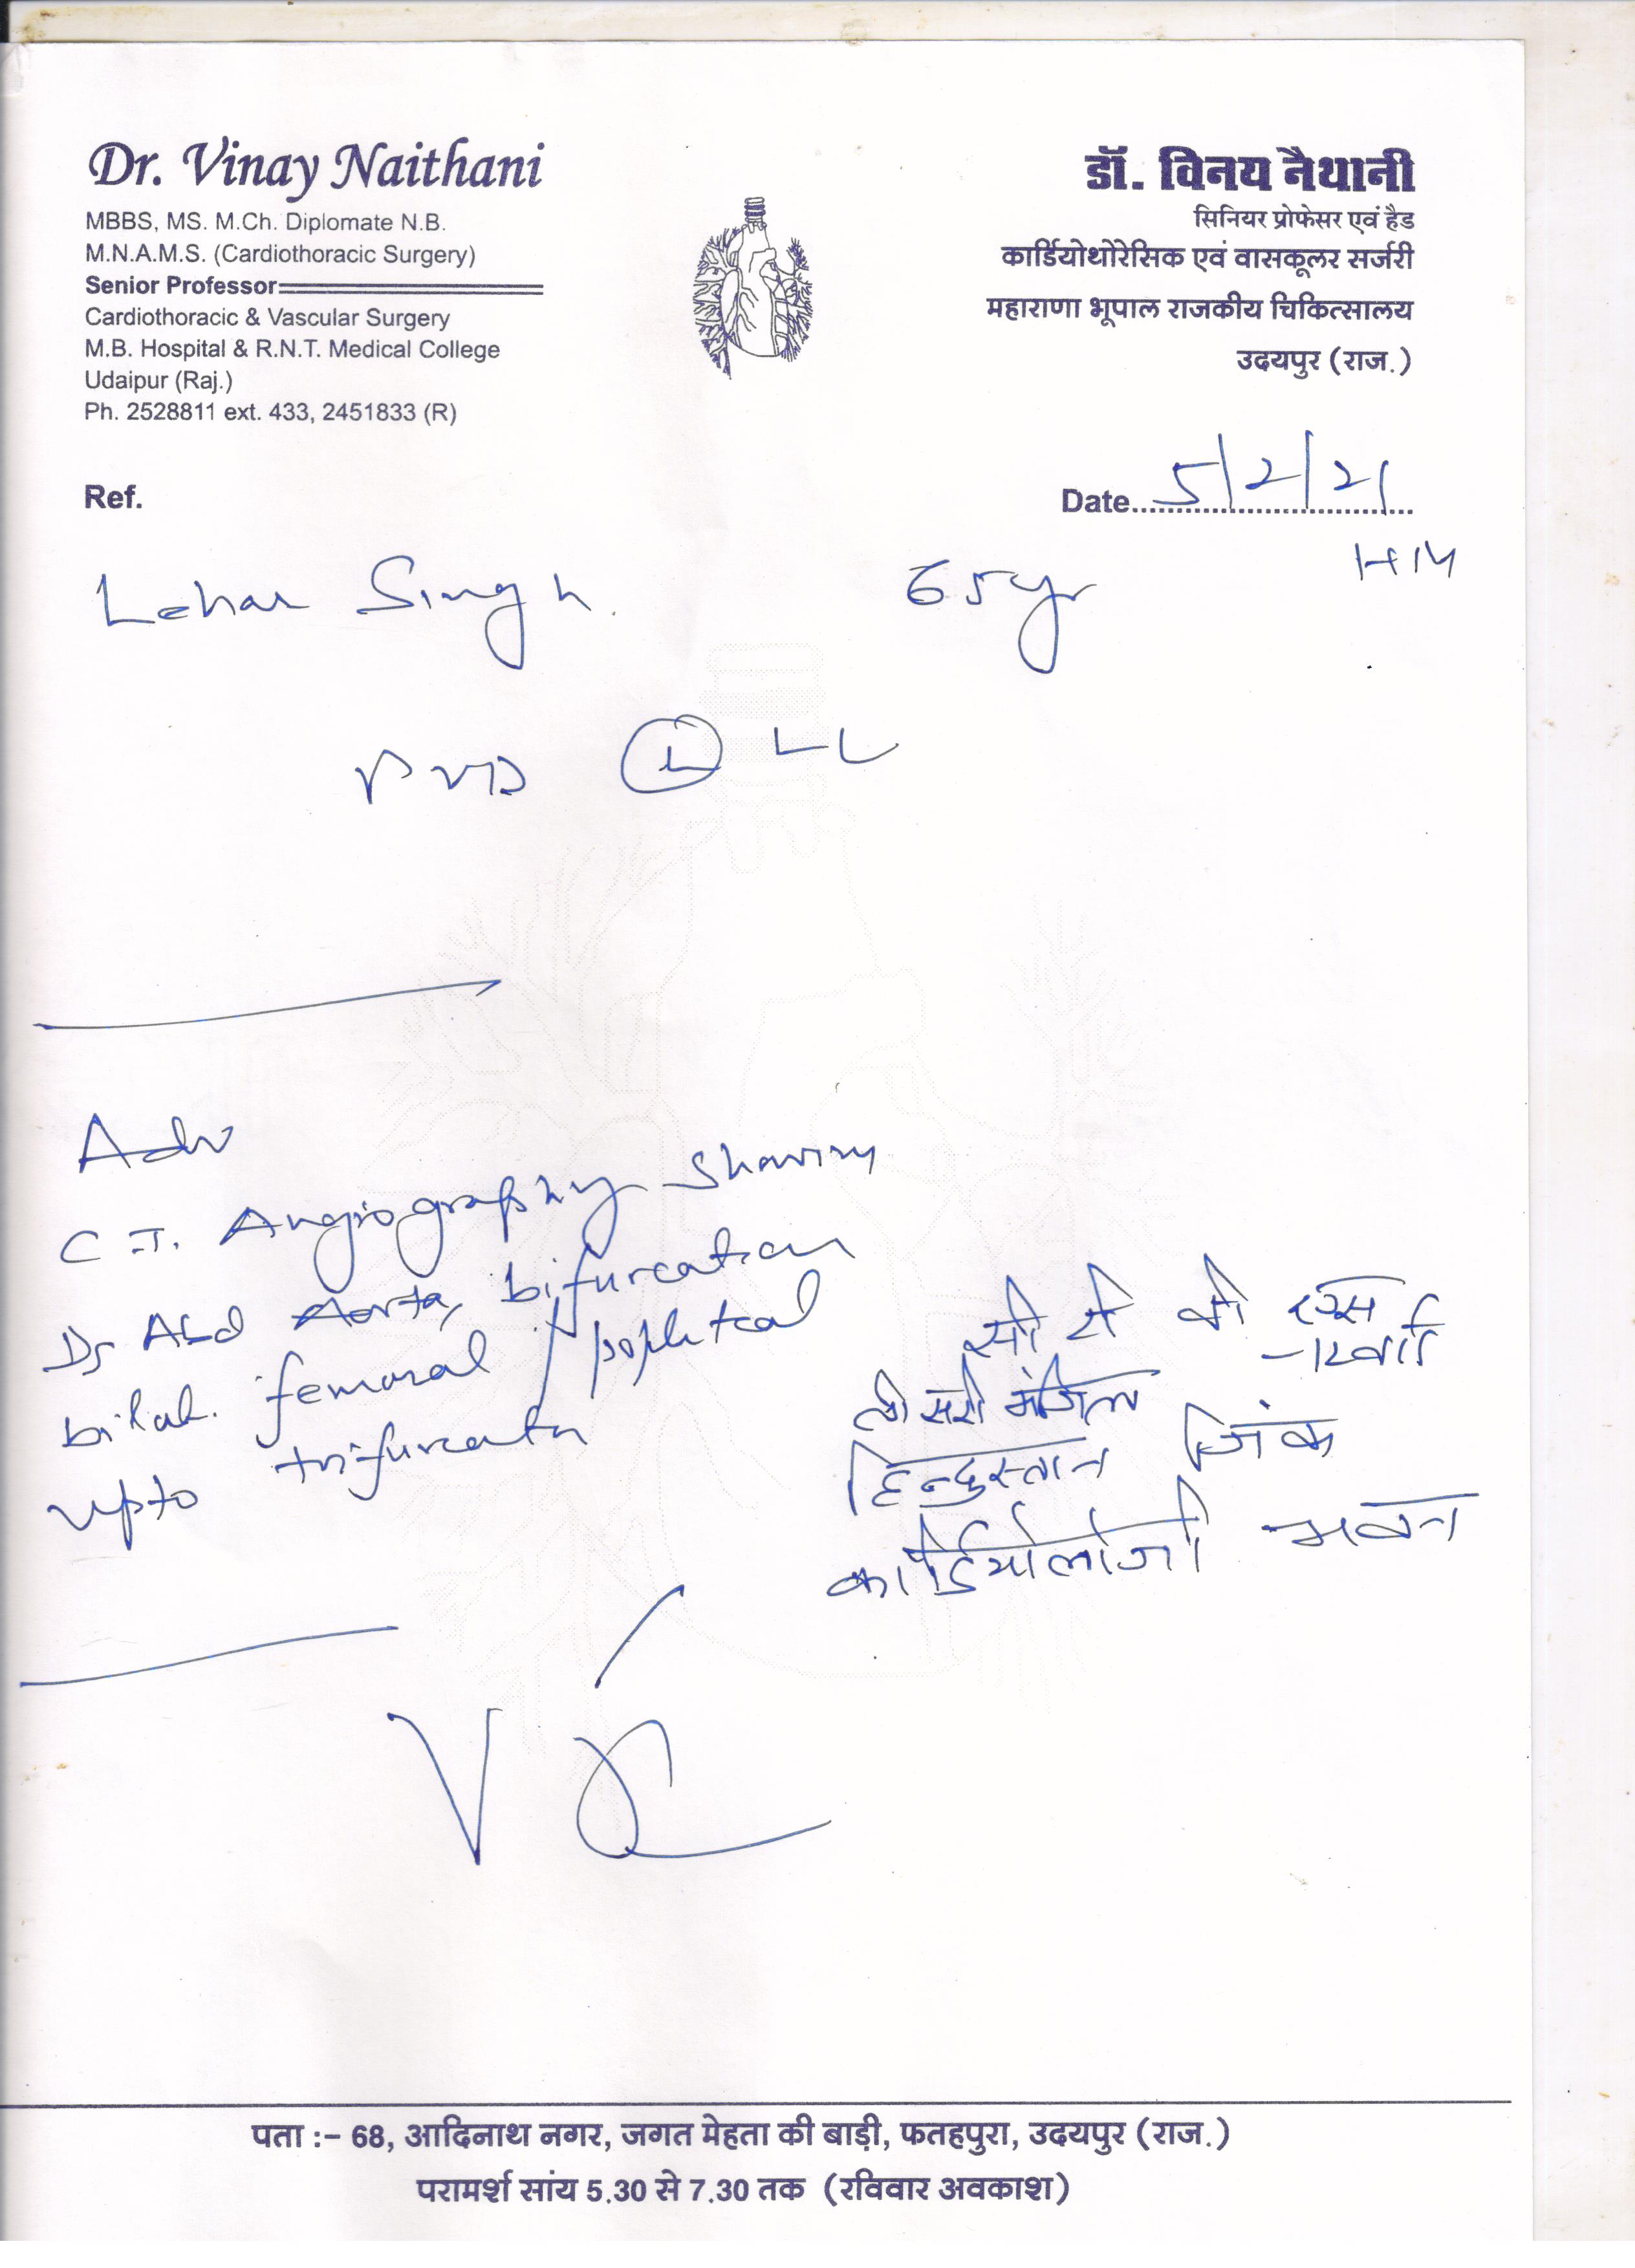 Dr. Vinay Naithani
MBBS, MS. M.Ch. Diplomate N.B.
M.N.A.M.S. (Cardiothoracic Surgery)
Senior Professor
Cardiothoracic & Vascular Surgery
M.B. Hospital & R.N.T. Medical College
Udaipur (Raj.)
Ph. 2528811 ext. 433, 2451833 (R)
डॉ. विनय नैथानी
सिनियर प्रोफेसर एवं हैड
कार्डियोथोरेसिक एवं वासकूलर सर्जरी
महाराणा भूपाल राजकीय चिकित्सालय
उदयपुर (राज.)
Ref.
Date 5/2/21
Lehar Singh 65yr
PVD L LL
Adv
C.T. Angiography Showing
Abd Aorta, bifurcation
bilat. femoral / popliteal
upto trifurcatn
सी टी वी एस
तीसरी मंजिल
हिन्दुस्तान जिंक
कार्डियोलोजी भवन
पता :- 68, आदिनाथ नगर, जगत मेहता की बाड़ी, फतहपुरा, उदयपुर (राज.)
परामर्श सांय 5.30 से 7.30 तक (रविवार अवकाश)